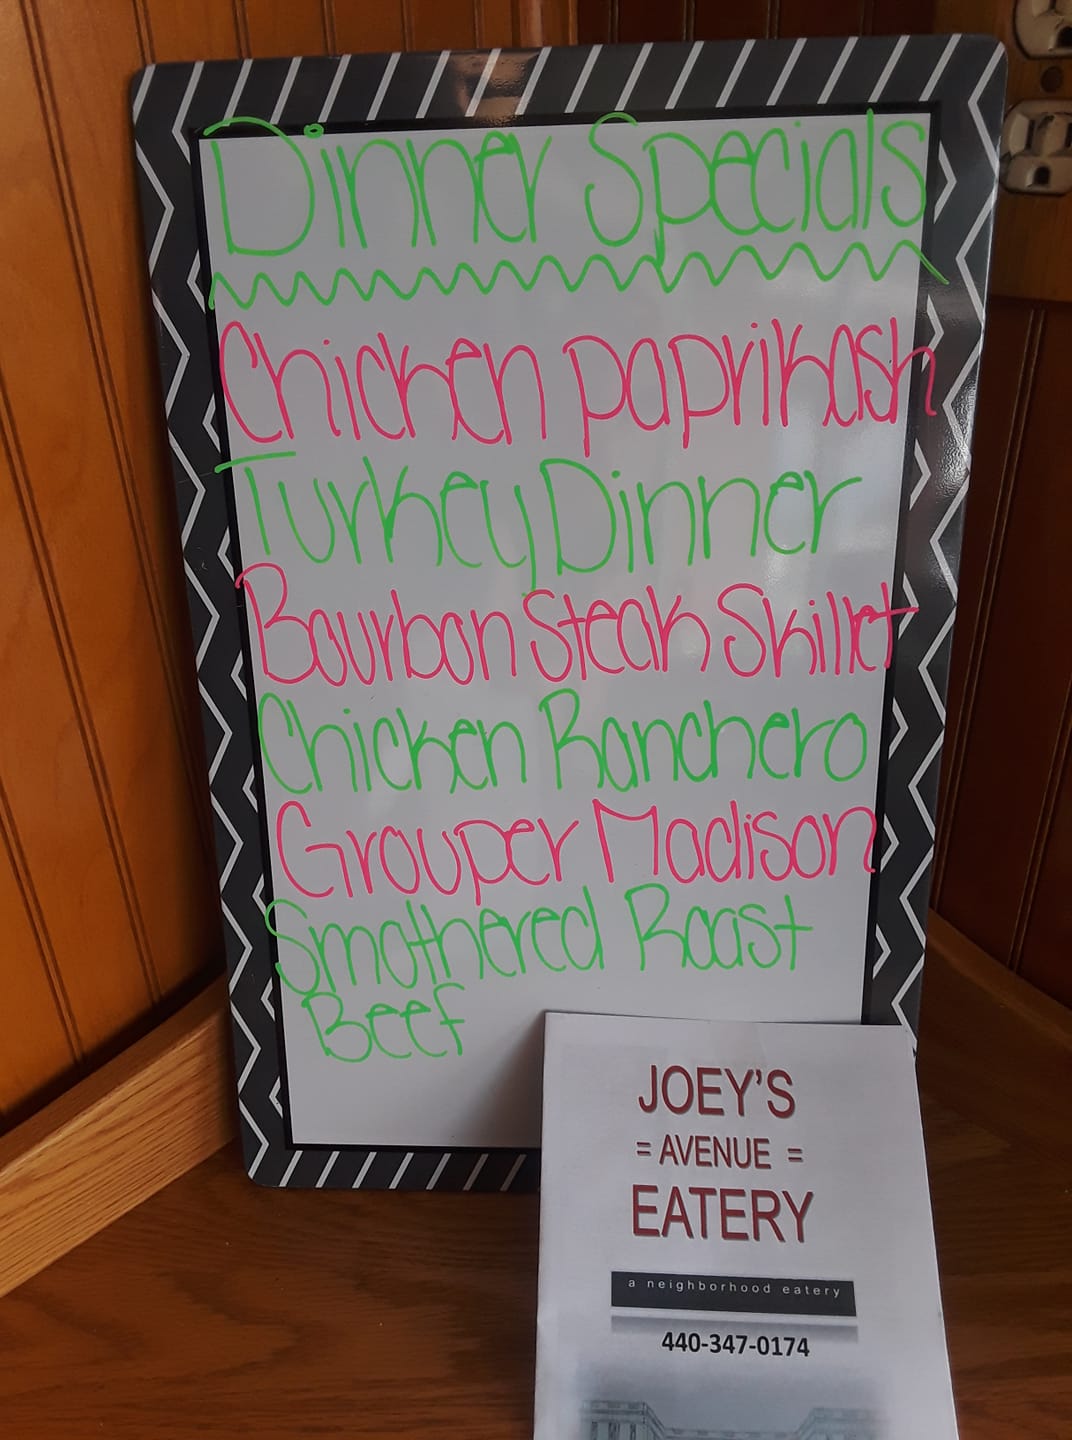 Dinner Specials
Chicken paprikash
Turkey Dinner
Bourbon Steak Skillet
Chicken Ranchero
Grouper Madison
Smothered Roast
Beef
JOEY'S
= AVENUE =
EATERY
a neighborhood eatery
440-347-0174